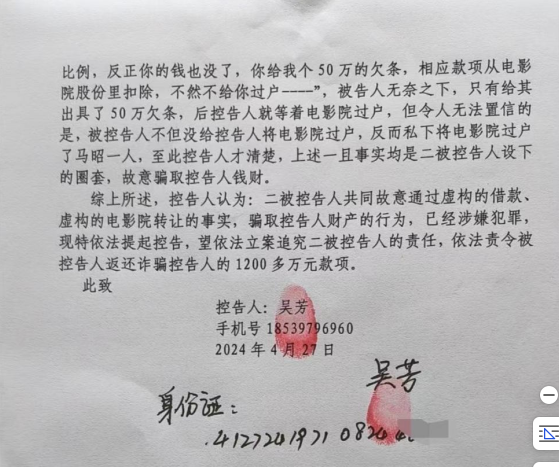 比例，反正你的钱也没了，你给我个 50 万的欠条，相应款项从电影
院股份里扣除，不然不给你过户----”，被告人无奈之下，只有给其
出具了 50 万欠条，后控告人就等着电影院过户，但令人无法置信的
是，被控告人不但没给控告人将电影院过户，反而私下将电影院过户
了马昭一人，至此控告人才清楚，上述一旦事实均是二被控告人设下
的圈套，故意骗取控告人钱财。
综上所述，控告人认为：二被控告人共同故意通过虚构的借款、
虚构的电影院转让的事实，骗取控告人财产的行为，已经涉嫌犯罪，
现特依法提起控告，望依法立案追究二被控告人的责任，依法责令被
控告人返还诈骗控告人的 1200 多万元款项。
此致
控告人：吴芳
手机号 18539796960
2024 年 4 月 27 日
吴芳
身份证：